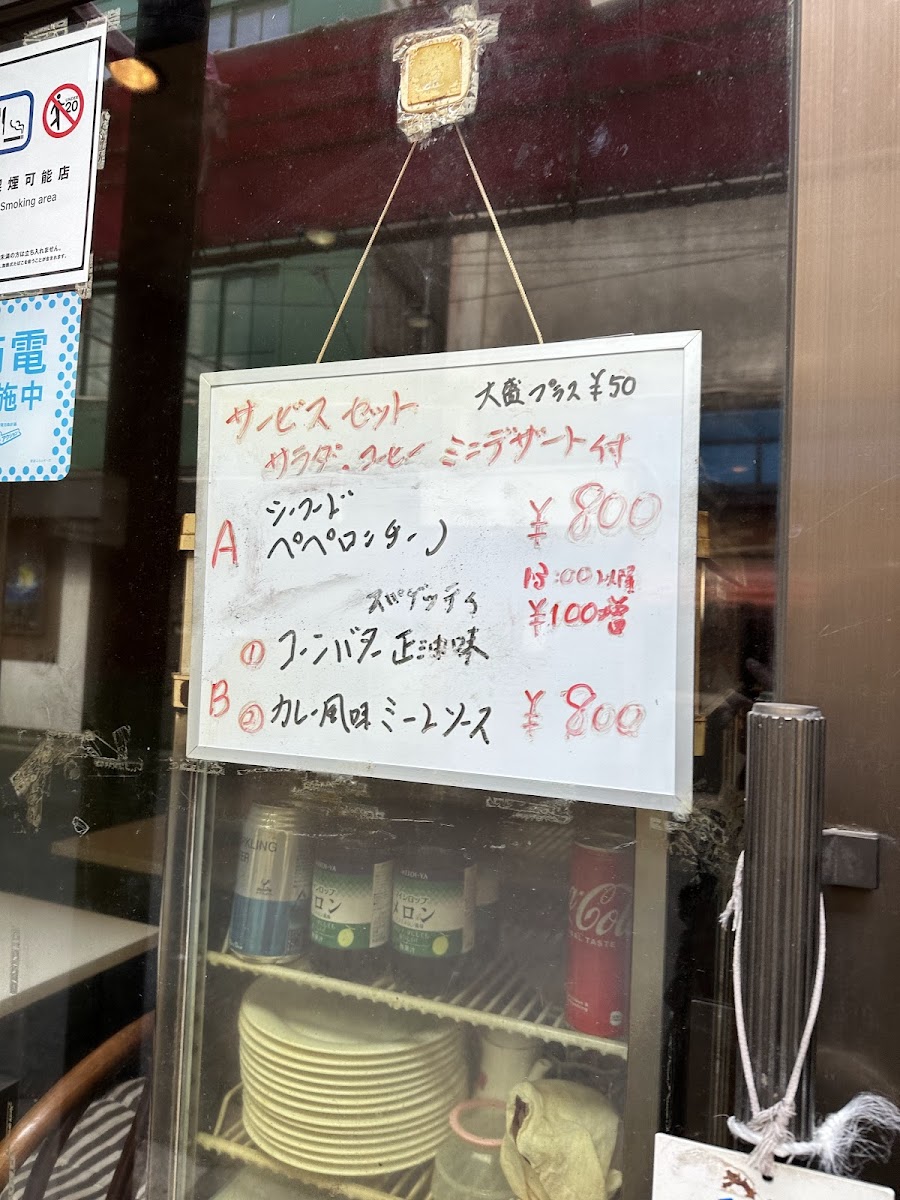 20
煙可能店
Smoking area
電
施中
大盛プラス¥50
サービスセット
サラダ.コーヒー ミニデザート付
A シーフード
ペペロンチーノ
¥800
¥100増
スパゲッティ
① コーンバター正油味
B ② カレー風味ミートソース ¥800
メロン
メロン
Co
TASTE